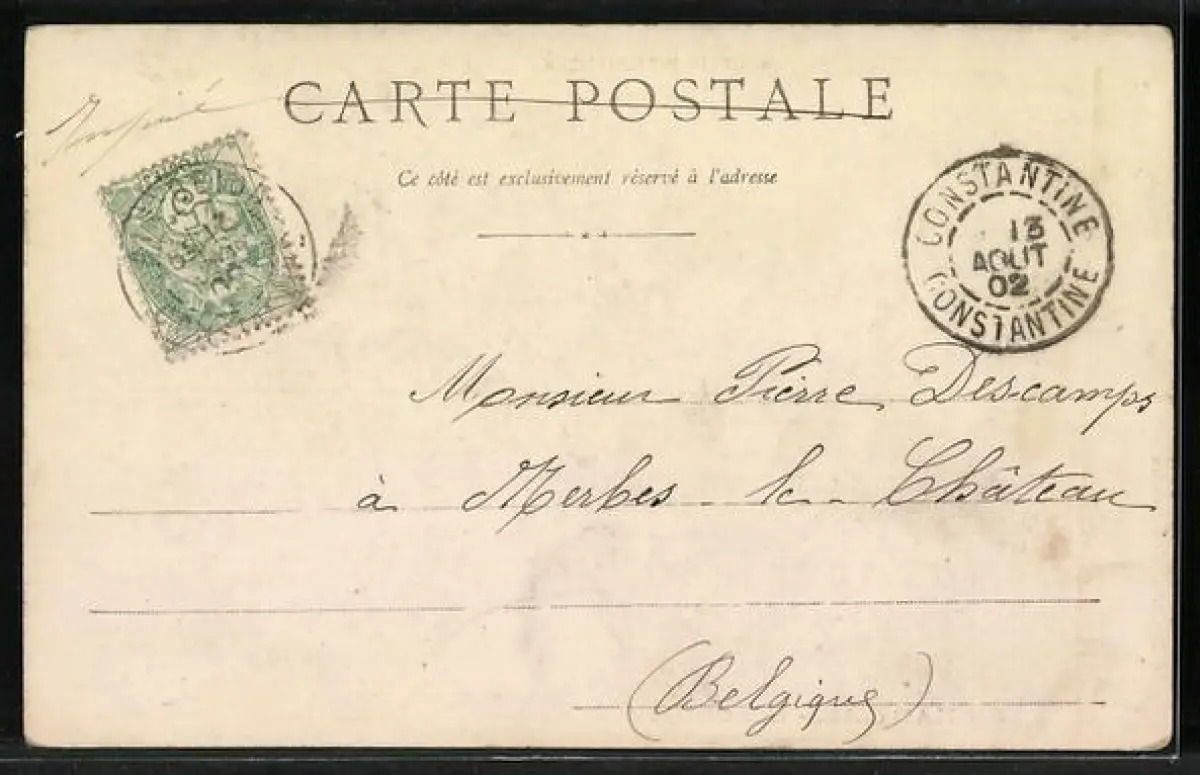 CARTE POSTALE
Imprimé
Ce côté est exclusivement réservé à l'adresse
CONSTANTINE
13
AOUT
02
CONSTANTINE
Monsieur Pierre Descamps
à Merbes-le-Château
(Belgique)